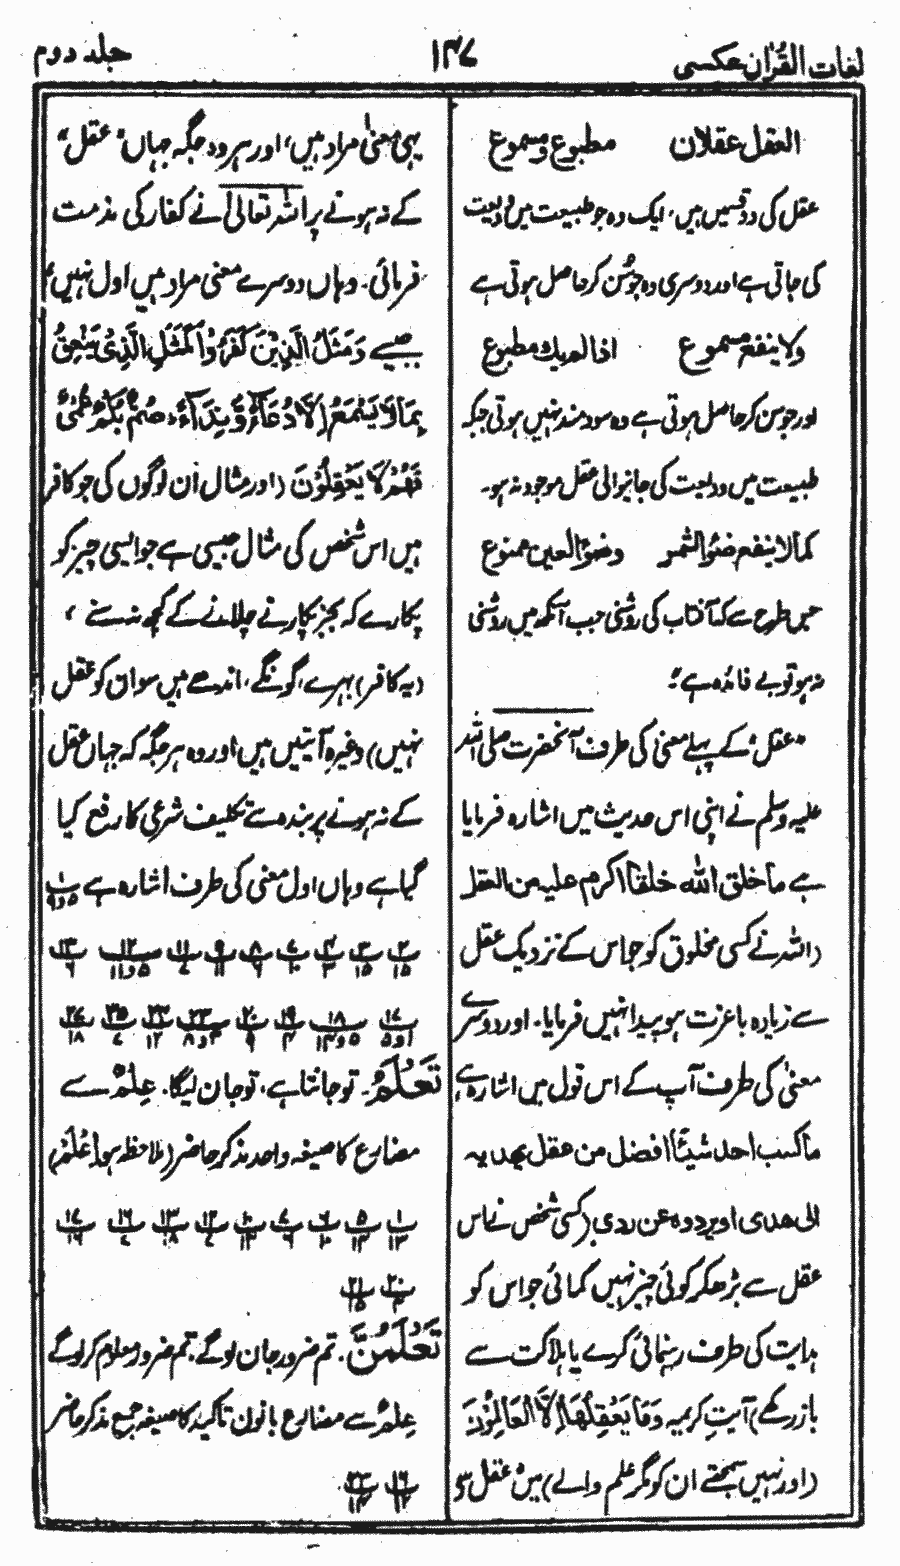 لغات القرآن عکسی
۱۴۷
جلد دوم
العقل عقلان مطبوع و مسموع
عقل کی دو قسمیں ہیں، ایک وہ جو طبیعت میں ودیعت
کی جاتی ہے اور دوسری وہ جو سن کر حاصل ہوتی ہے
ولا ینفع مسموع اذا لم یک مطبوع
اور جو سن کر حاصل ہوتی ہے وہ سودمند نہیں ہوتی جبکہ
طبیعت میں ودیعت کی جانیوالی عقل موجود نہ ہو۔
کما لا ینفع ضوء الشمس وضوء العین ممنوع
جس طرح سے کہ آفتاب کی روشنی جب آنکھ میں روشنی
نہ ہو تو بے فائدہ ہے"
"عقل" کے پہلے معنیٰ کی طرف آنحضرت صلی اللہ
علیہ وسلم نے اپنی اس حدیث میں اشارہ فرمایا
ہے ما خلق اللہ خلقا اکرم علیہ من العقل
(اللہ نے کسی مخلوق کو جو اس کے نزدیک عقل
سے زیادہ باعزت ہو پیدا نہیں فرمایا۔ اور دوسرے
معنیٰ کی طرف آپ کے اس قول میں اشارہ ہے،
ما کسب احد شیئا افضل من عقل یھدیہ
الی ھدی او یردہ عن ردی (کسی شخص نے اس
عقل سے بڑھکر کوئی چیز نہیں کمائی جو اس کو
ہدایت کی طرف رہنمائی کرے یا ہلاکت سے
باز رکھے) آیتِ کریمہ وَمَا یَعْقِلُهَا إِلَّا الْعَالِمُوْنَ
(اور نہیں سمجھتے ان کو مگر علم والے) میں "عقل" سے
یہی معنیٰ مراد ہیں، اور ہر وہ جگہ جہاں "عقل"
کے نہ ہونے پر اللہ تعالیٰ نے کفار کی مذمت
فرمائی۔ وہاں دوسرے معنی مراد ہیں اول نہیں،
جیسے وَمَثَلُ الَّذِیْنَ کَفَرُوْا کَمَثَلِ الَّذِیْ یَنْعِقُ
بِمَا لَا یَسْمَعُ اِلَّا دُعَآءً وَّنِدَآءً صُمٌّ بُکْمٌ عُمْیٌ
فَهُمْ لَا یَعْقِلُوْنَ (اور مثال ان لوگوں کی جو کافر
ہیں اس شخص کی مثال جیسی ہے جو ایسی چیز کو
پکارے کہ بجز پکارنے چلانے کے کچھ نہ سنے،
(یہ کافر) بہرے، گونگے، اندھے ہیں سو ان کو عقل
نہیں) وغیرہ آیتیں ہیں اور وہ ہر جگہ کہ جہاں عقل
کے نہ ہونے پر بندہ سے تکلیف شرعی کا رفع کیا
گیا ہے وہاں اول معنی کی طرف اشارہ ہے
تَعْلَمُ۔ تو جانتا ہے، تو جان لیگا۔ عِلْمٌ سے
مضارع کا صیغہ واحد مذکر حاضر (ملاحظہ ہو اَعْلَمُ)
تَعْلَمُنَّ۔ تم ضرور جان لو گے، تم ضرور معلوم کر لو گے
عِلْمٌ سے مضارع بانون تاکید کا صیغہ جمع مذکر حاضر